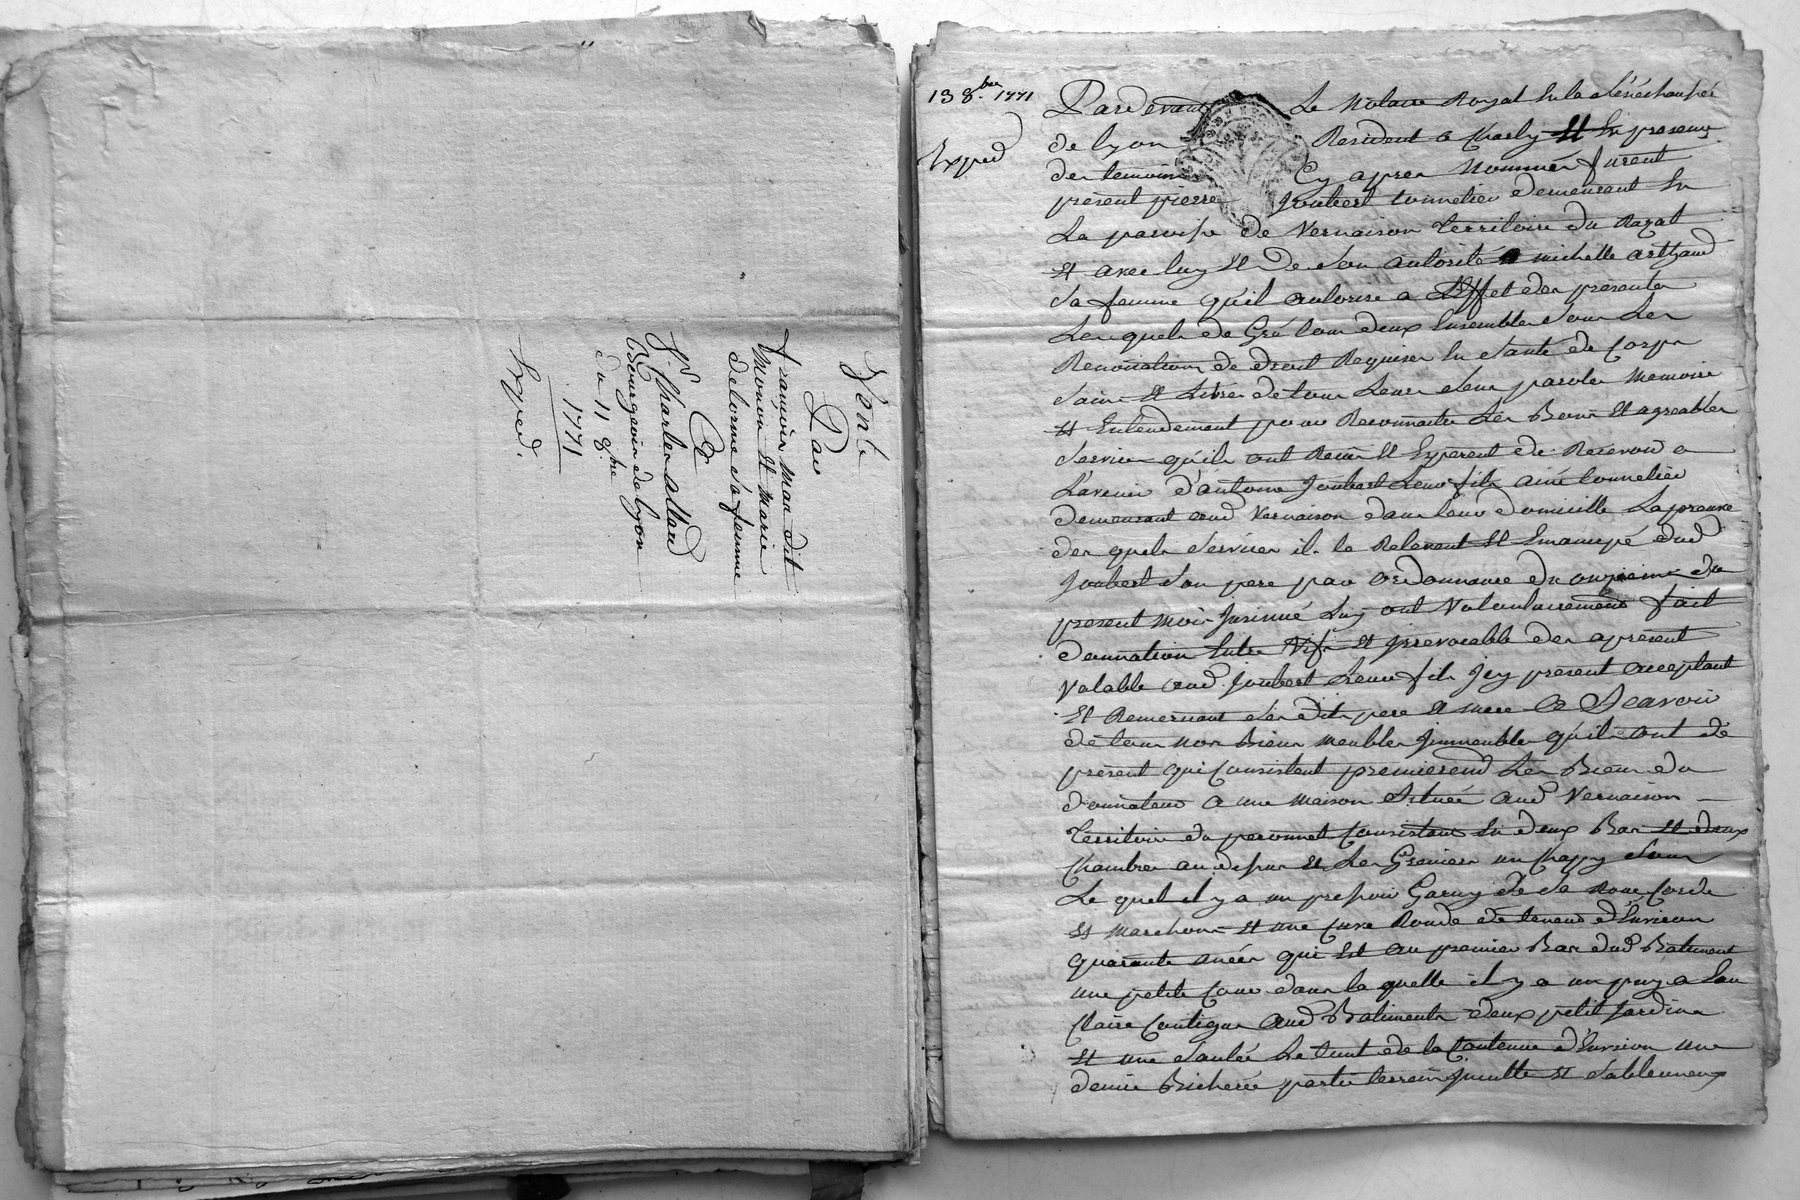 Vente
Par
françois man dit
monon et marie
delorme sa femme
A
Sr Charles allard
Bourgeois de lyon
du 11 8bre
1771
Exped.
13 8.bre 1771
Exped
Pardevant Le Notaire Royal En la sénéchaussée
de lyon Resident a Charly Et En presence
des temoins Cy apres Nommés furent
présent pierre Joubert tonnelier demeurant En
La paroisse de Vernaison territoire du Razat
Et avec luy Et De son autorité michelle arthaud
sa femme qu'il autorise a L'Effet des présentes
Lesquels de Gré tous deux Ensemble sous Les
Renonciations de droit Requises En santé de Corps
sains Et Libres de tous Leurs sens parole Memoire
Et Entendement pour Reconnaitre Les Bons Et agreables
services qu'ils ont Reçus Et Esperent de Recevoir a
L'avenir d'antoine Joubert Leur fils ainé tonnelier
demeurant aud Vernaison dans leur domicille La preuve
des quels services il le Relevent Et Emancipé dud
Joubert son pere par ordonnance du onzieme du
present mois Jnsinué Luy ont Volontairement fait
donnation Entre Vifs Et Jrrevocable des apresent
Valable aud. Joubert Leur fils Jcy présent acceptant
Et Remerciant ses dits pere Et mere A Sçavoir
de tous Nos Biens meubles Jmmeubles qu'ils ont de
présent qui Consistent premierement Les Biens du
donnateur a une maison située aud Vernaison
territoire du peronnet Consistant En deux Bas Et deux
Chambres au dessus Et Les Greniers un Chapy sous
Le quel il y a un pressoir Garny de sa Roue Corde
Et Marchons Et une Cuve Ronde de teneue d'Environ
quarante anées qui Est au premier Bas dud Batiment
une petite Cour dans la quelle il y a un puy a Eau
Claire Contigue aud Batiments deux petit Jardins
Et une saulée Le tout de la Contenue d'Environ une
demie Bicherée partie terrein Jnculte Et sablonneux